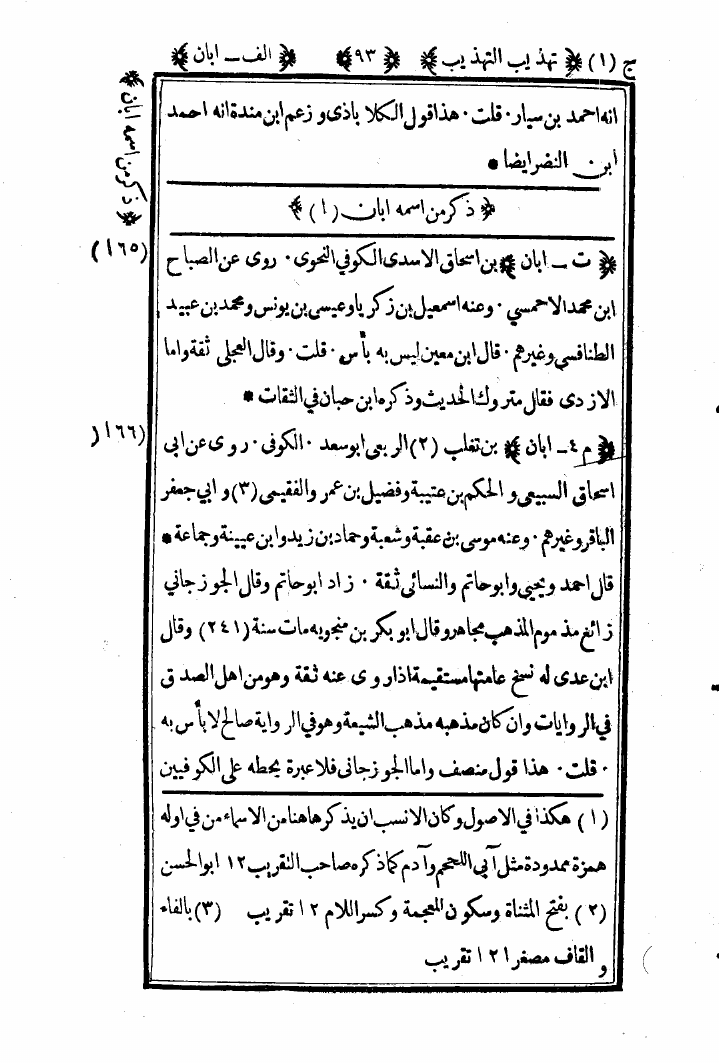 ج (١) ﴿ تهذيب التهذيب ﴾ ﴿ ٩٣ ﴾ ﴿ الف ـ ابان ﴾
﴿ ذكر من اسمه ابان ﴾
انه احمد بن سيار ٠ قلت ٠ هذا قول الكلاباذى وزعم ابن مندة انه احمد
ابن النضر ايضا •
﴿ ذكر من اسمه ابان (١) ﴾
(١٦٥)
﴿ ت ـ ابان ﴾ بن اسحاق الاسدى الكوفي النحوى ٠ روى عن الصباح
ابن محمد الاحمسي ٠ وعنه اسمعيل بن زكريا وعيسى بن يونس ومحمد بن عبيد
الطنافسي وغيرهم ٠ قال ابن معين ليس به بأس ٠ قلت ٠ وقال العجلى ثقة واما
الازدى فقال متروك الحديث وذكره ابن حبان في الثقات •
(١٦٦)
﴿ م ٤ ـ ابان ﴾ بن تغلب (٢) الربعى ابو سعد ٠ الكوفى ٠ روى عن ابى
اسحاق السبيعى والحكم بن عتيبة وفضيل بن عمرو الفقيمى (٣) وابي جعفر
الباقر وغيرهم ٠ وعنه موسى بن عقبة وشعبة وحماد بن زيد وابن عيينة وجماعة •
قال احمد ويحيى وابو حاتم والنسائى ثقة ٠ زاد ابو حاتم وقال الجوزجاني
زائغ مذموم المذهب مجاهر وقال ابو بكر بن منجويه مات سنة (٢٤١) وقال
ابن عدى له نسخ عامتها مستقيمة اذا روى عنه ثقة وهو من اهل الصدق
في الروايات وان كان مذهبه مذهب الشيعة وهو في الرواية صالح لا بأس به
٠ قلت ٠ هذا قول منصف واما الجوزجانى فلا عبرة بحطه على الكوفيين
(١) هكذا في الاصول وكان الانسب ان يذكر هاهنا من الاسماء من في اوله
همزة ممدودة مثل آبى اللحم وآدم كما ذكره صاحب التقريب ١٢ ابو الحسن
(٢) بفتح المثناة وسكون المعجمة وكسر اللام ١٢ تقريب (٣) بالفاء
و القاف مصغرا ١٢ تقريب